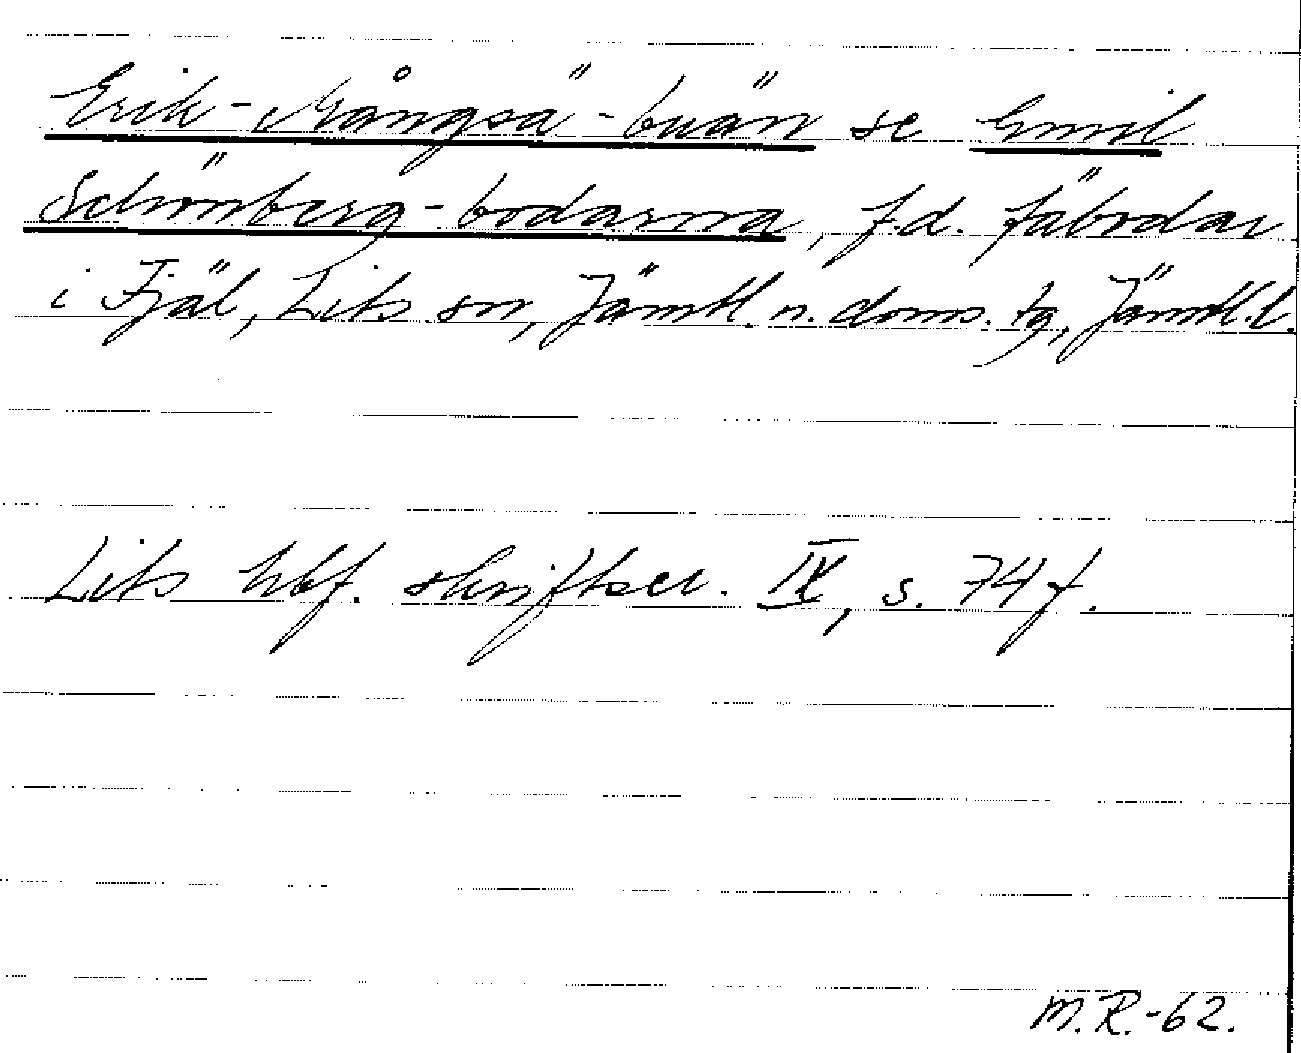 Erik-Mångsä-buän se Emil
Schönberg-bodarna, f.d. fäbodar
i Fjäl, Lits sn, Jämtl. n. doms. tg, Jämtl. l.
Lits hbf. skriftser. IV, s. 74 f.
M.R.-62.